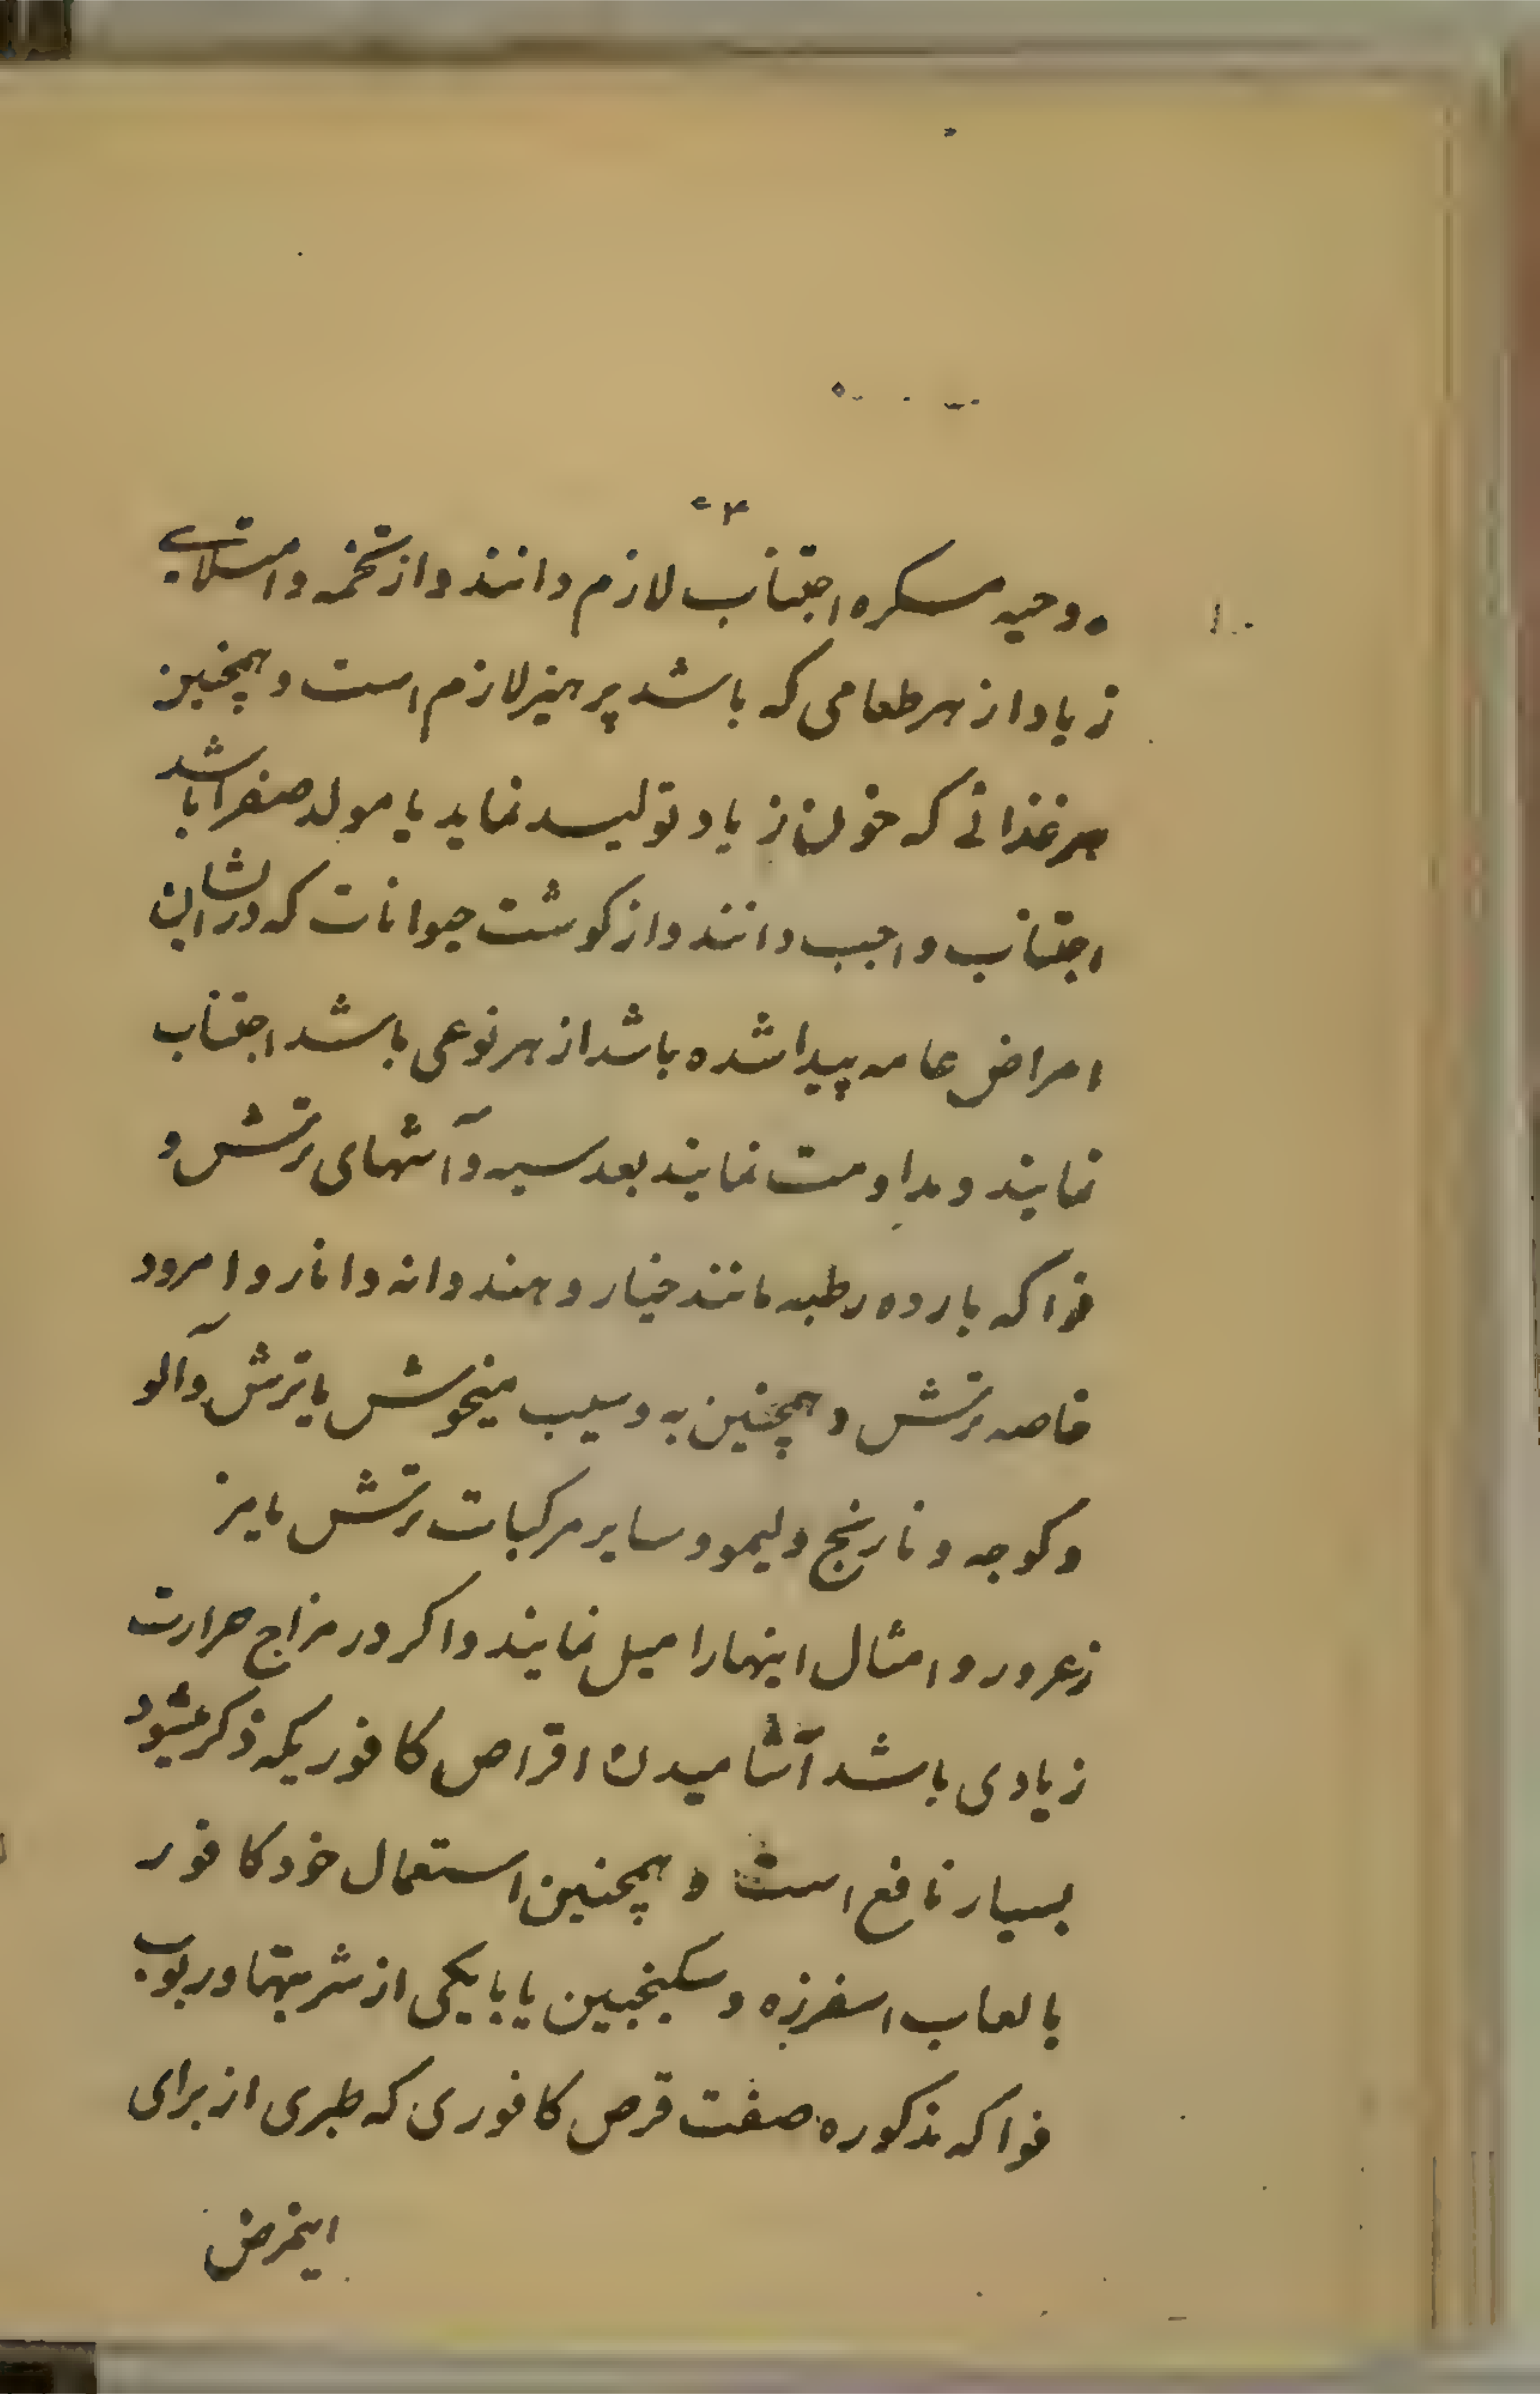 روحیه مسکره اجتناب لازم دانند و از تخمه و امتلای
زیاد از هر طعامی که باشد پرهیز لازم است و همچنین
هر غذائی که خون زیاد تولید نماید یا مولد صفرا باشد
اجتناب واجب دانند و از گوشت حیوانات که در ایشان
امراض عامه پیدا شده باشد از هر نوعی باشد اجتناب
نمایند و مداومت نمایند بعدسیه و آشهای ترش و
فواکه بارده رطبه مانند خیار و هندوانه و انار و امرود
خاصه ترش و همچنین به و سیب میخوش یا ترش و آلو
و کوجه و نارنج و لیمو و سایر مرکبات ترش یا مز
زعرور و امثال اینها را میل نمایند و اکر در مزاج حرارت
زیادی باشد آشامیدن اقراص کافوریکه ذکر میشود
بسیار نافع است و همچنین استعمال خود کافور
با لعاب اسفرزه و سکنجبین یا با یکی از شربتها و ربوب
فواکه مذکوره صفت قرص کافوری که طبری از برای
اینمرض